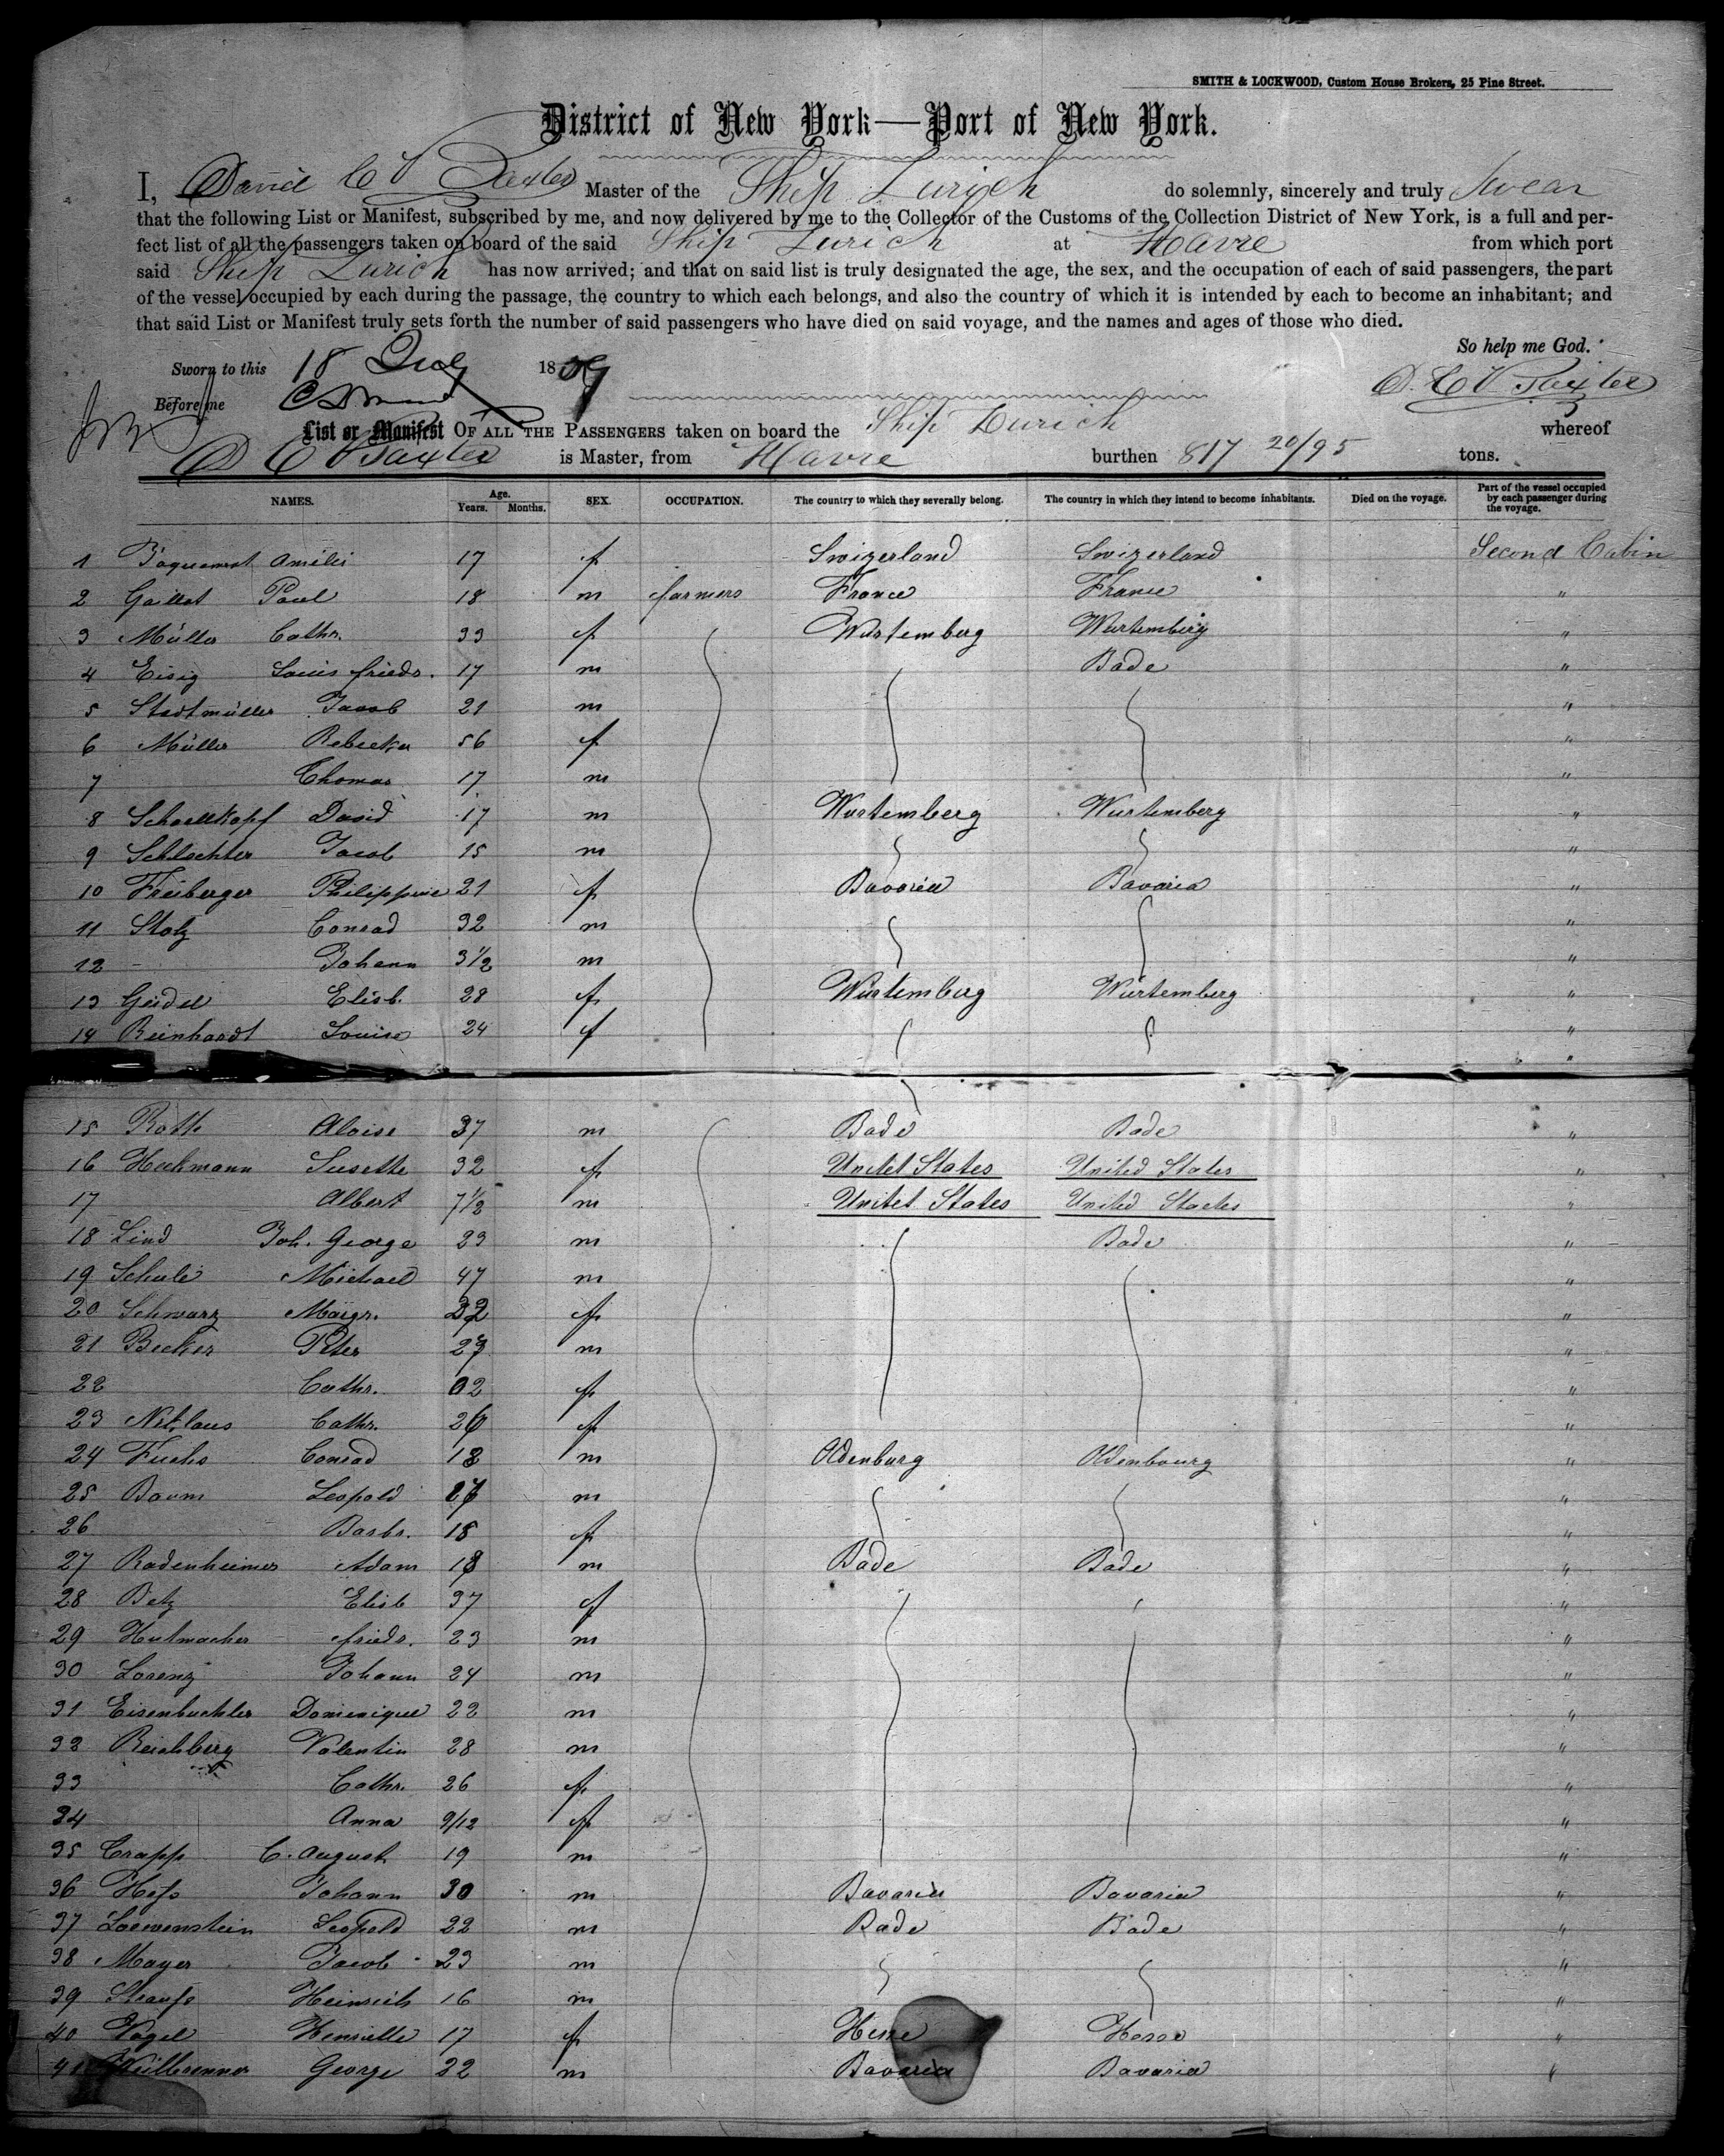 SMITH & LOCKWOOD, Custom House Brokers, 25 Pine Street.
District of New York—Port of New York.
I, David C V Baxter Master of the Ship Zurich do solemnly, sincerely and truly Swear
that the following List or Manifest, subscribed by me, and now delivered by me to the Collector of the Customs of the Collection District of New York, is a full and per-
fect list of all the passengers taken on board of the said Ship Zurich at Havre from which port
said Ship Zurich has now arrived; and that on said list is truly designated the age, the sex, and the occupation of each of said passengers, the part
of the vessel occupied by each during the passage, the country to which each belongs, and also the country of which it is intended by each to become an inhabitant; and
that said List or Manifest truly sets forth the number of said passengers who have died on said voyage, and the names and ages of those who died.
So help me God.
Sworn to this 18 July 1859
Before me D. C V Baxter
List or Manifest OF ALL THE PASSENGERS taken on board the Ship Zurich whereof
D C V Baxter is Master, from Havre burthen 817 20/95 tons.
NAMES. Age. Years. Months. SEX. OCCUPATION. The country to which they severally belong. The country in which they intend to become inhabitants. Died on the voyage. Part of the vessel occupied by each passenger during the voyage.
1 Amélie 17 f Swizerland Swizerland Second Cabin
2 Gallot Paul 18 m farmers France France "
3 Müller Cathr. 33 f Wurtemberg Wurtemberg "
4 Eisig Louis friedr. 17 m Bade "
5 Stadtmüller Jacob 21 m "
6 Müller Rebecka 56 f "
7 Thomas 17 m "
8 Schoellkopf David 17 m Wurtemberg Wurtemberg "
9 Schlachter Jacob 15 m "
10 Freiberger Philippine 21 f Bavaria Bavaria "
11 Stolz Conrad 32 m "
12 - Johann 3 1/2 m "
13 Geidel Elisb. 28 f Wurtemberg Würtemberg "
14 Reinhardt Louise 24 f "
"
15 Roth Aloise 37 m Bade Bade "
16 Heckmann Susette 32 f Unitet States United States "
17 Albert 7 1/2 m Unitet States United Staetes "
18 Lind Joh. George 23 m Bade "
19 Schule Michael 47 m "
20 Schwarz Margr. 32 f "
21 Becker Peter 27 m "
22 Cathr. f "
23 Niklaus Cathr. 26 f "
24 Fuchs Conrad 18 m Oldenburg Oldenbourg "
25 Baum Leopold 27 m "
26 Barbr. 18 f "
27 Radenheimer Adam 18 m Bade Bade "
28 Betz Elisb 37 f "
29 Hutmacher friedr. 23 m "
30 Lorenz Johann 24 m "
31 Eisenbuchler Dominique 22 m "
32 Reichberg Valentin 28 m "
33 Cathr. 26 f "
34 Anna 9/12 f "
35 Crapp C. August 19 m "
36 Heſs Johann 30 m Bavaria Bavaria "
37 Loewenstein Leopold 22 m Bade Bade "
38 Mayer Jacob 23 m "
39 Strauſs Heinrich 16 m "
40 Vogel Henriette 17 f Hesse Hesse "
41 George 22 m Bavaria Bavaria "